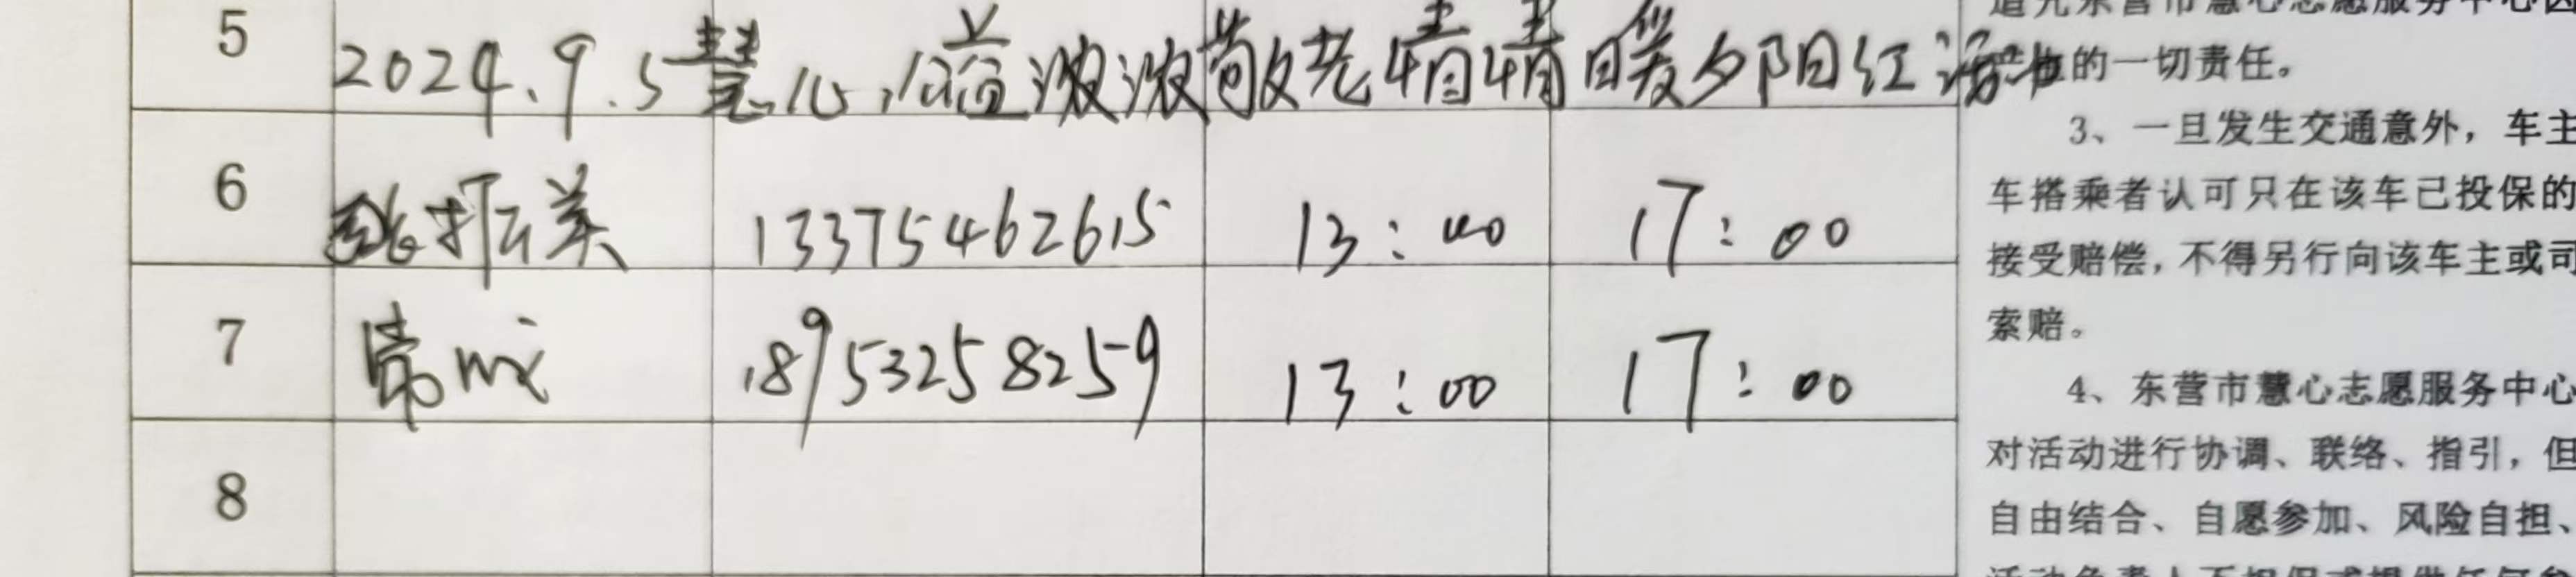 5 2024.9.5慧心溢浓浓敬老情情暖夕阳红活动
6 13375462615 13:00 17:00
7 常 18953258259 13:00 17:00
8
的一切责任。
3、一旦发生交通意外，车主
车搭乘者认可只在该车已投保的
接受赔偿，不得另行向该车主或司
索赔。
4、东营市慧心志愿服务中心
对活动进行协调、联络、指引，但
自由结合、自愿参加、风险自担、